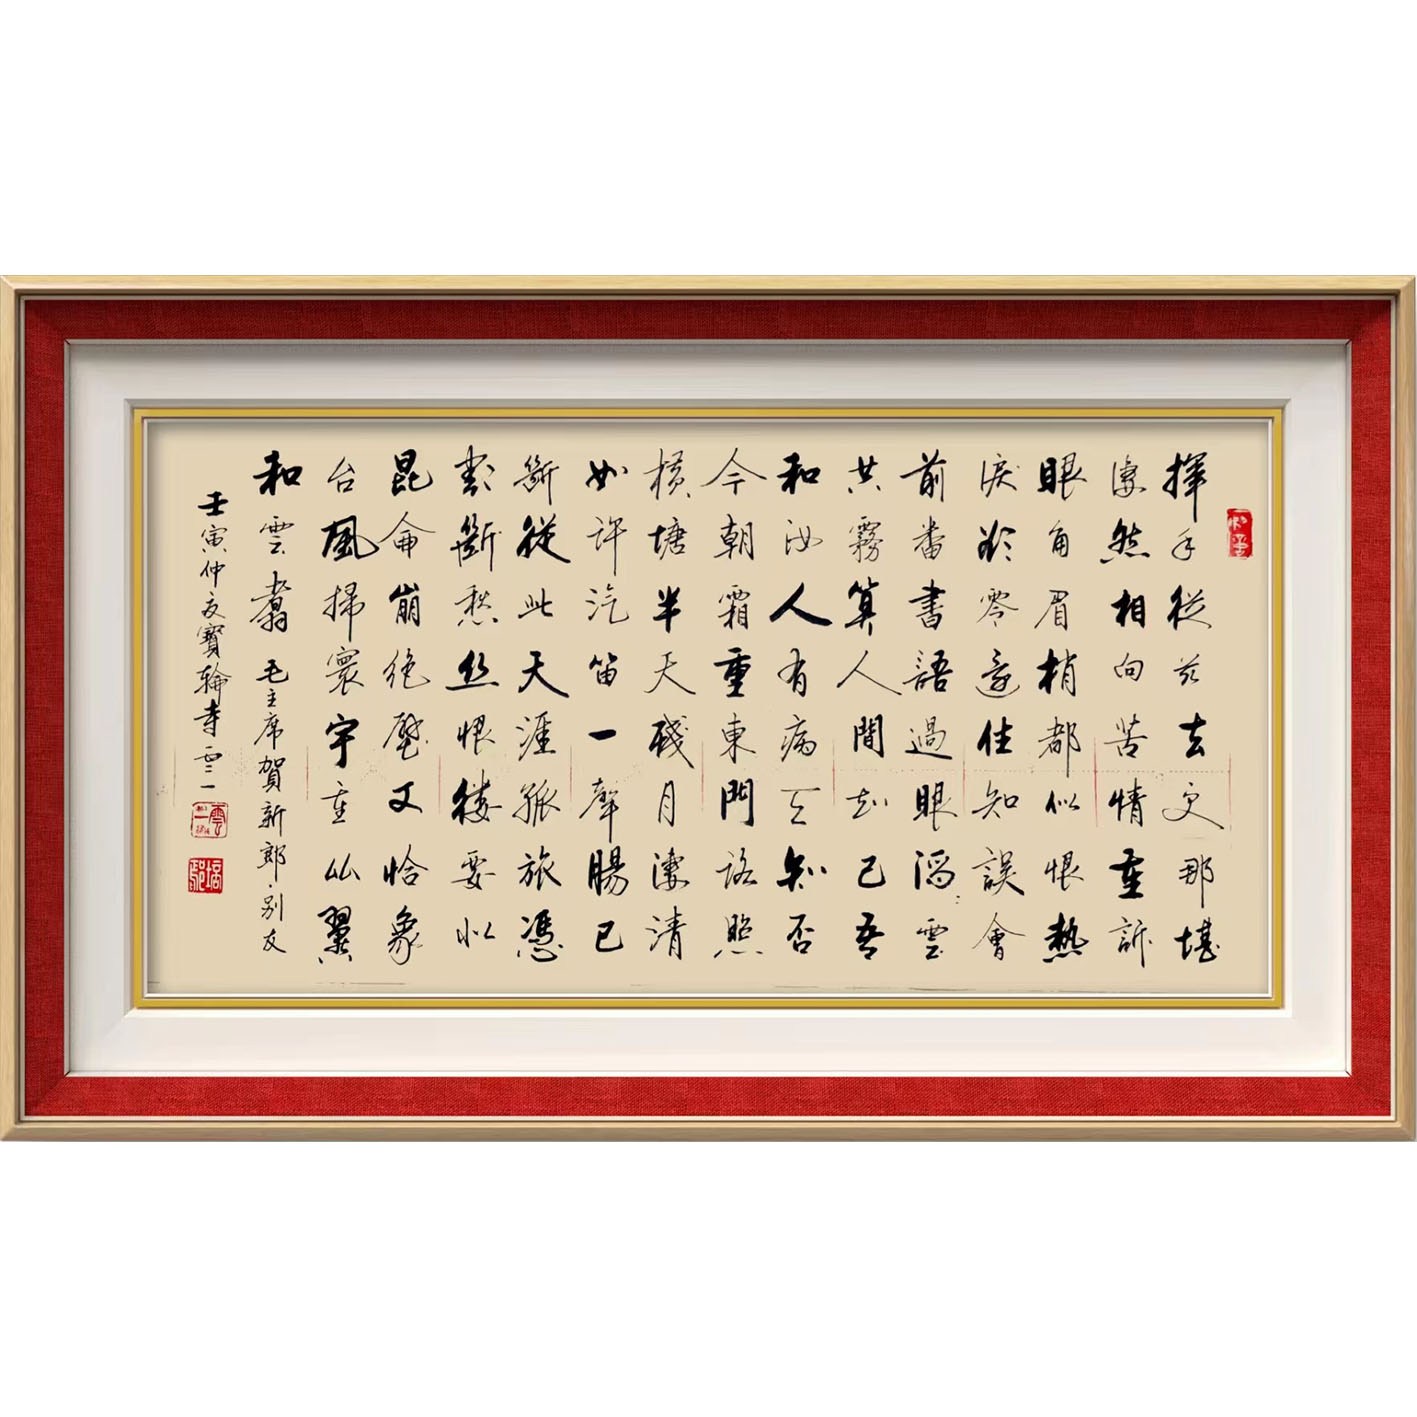 揮手從茲去更那堪
淒然相向苦情重訴
眼角眉梢都似恨熱
淚欲零還住知誤會
前番書語過眼滔〻雲
共霧算人間知己吾
和汝人有病天知否
今朝霜重東門路照
橫塘半天殘月淒清
如許汽笛一聲腸已
斷從此天涯孤旅憑
割斷愁絲恨縷要似
昆侖崩絕壁又恰象
台風掃寰宇重比翼
和雲翥 毛主席賀新郎·别友
壬寅仲夏寶輪寺雲一